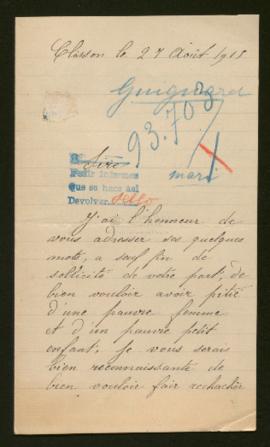 Clisson le 27 Août 1915
Guignard
93.703
mari
Sire
Pedir informes
Que se hace así
Devolver sello
J'ai l'honneur de
vous adresser ses quelques
mots, a seul fin de
sollicité de votre part, de
bien vouloir avoir pitié
d'une pauvre femme
et d'un pauvre petit
enfant, je vous serais
bien reconnaissante de
bien vouloir fair rechercher